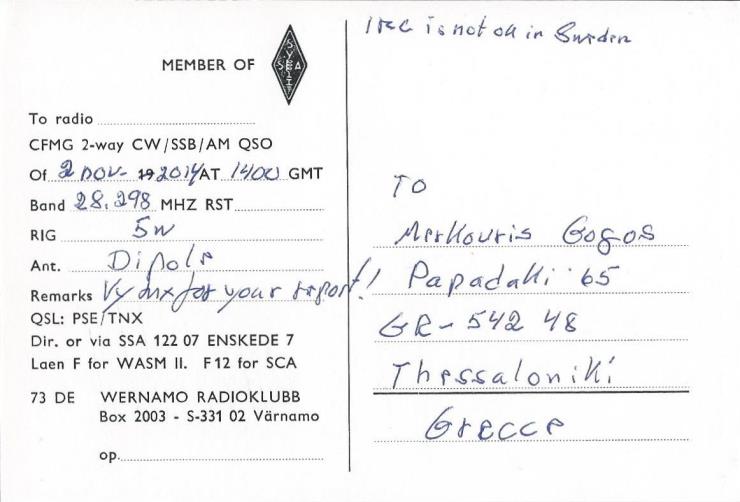 MEMBER OF
SSA
To radio
CFMG 2-way CW/SSB/AM QSO
Of 2 NOV- 19 2014 AT 1400 GMT
Band 28.298 MHZ RST
RIG 5W
Ant. Dipole
Remarks Vy tnx for your report!
QSL: PSE/TNX
Dir. or via SSA 122 07 ENSKEDE 7
Laen F for WASM II. F12 for SCA
73 DE WERNAMO RADIOKLUBB
Box 2003 - S-331 02 Värnamo
op.
IRC is not ok in Sweden
TO
Merkouris Gogos
Papadaki 65
GR-542 48
Thessaloniki
Greece